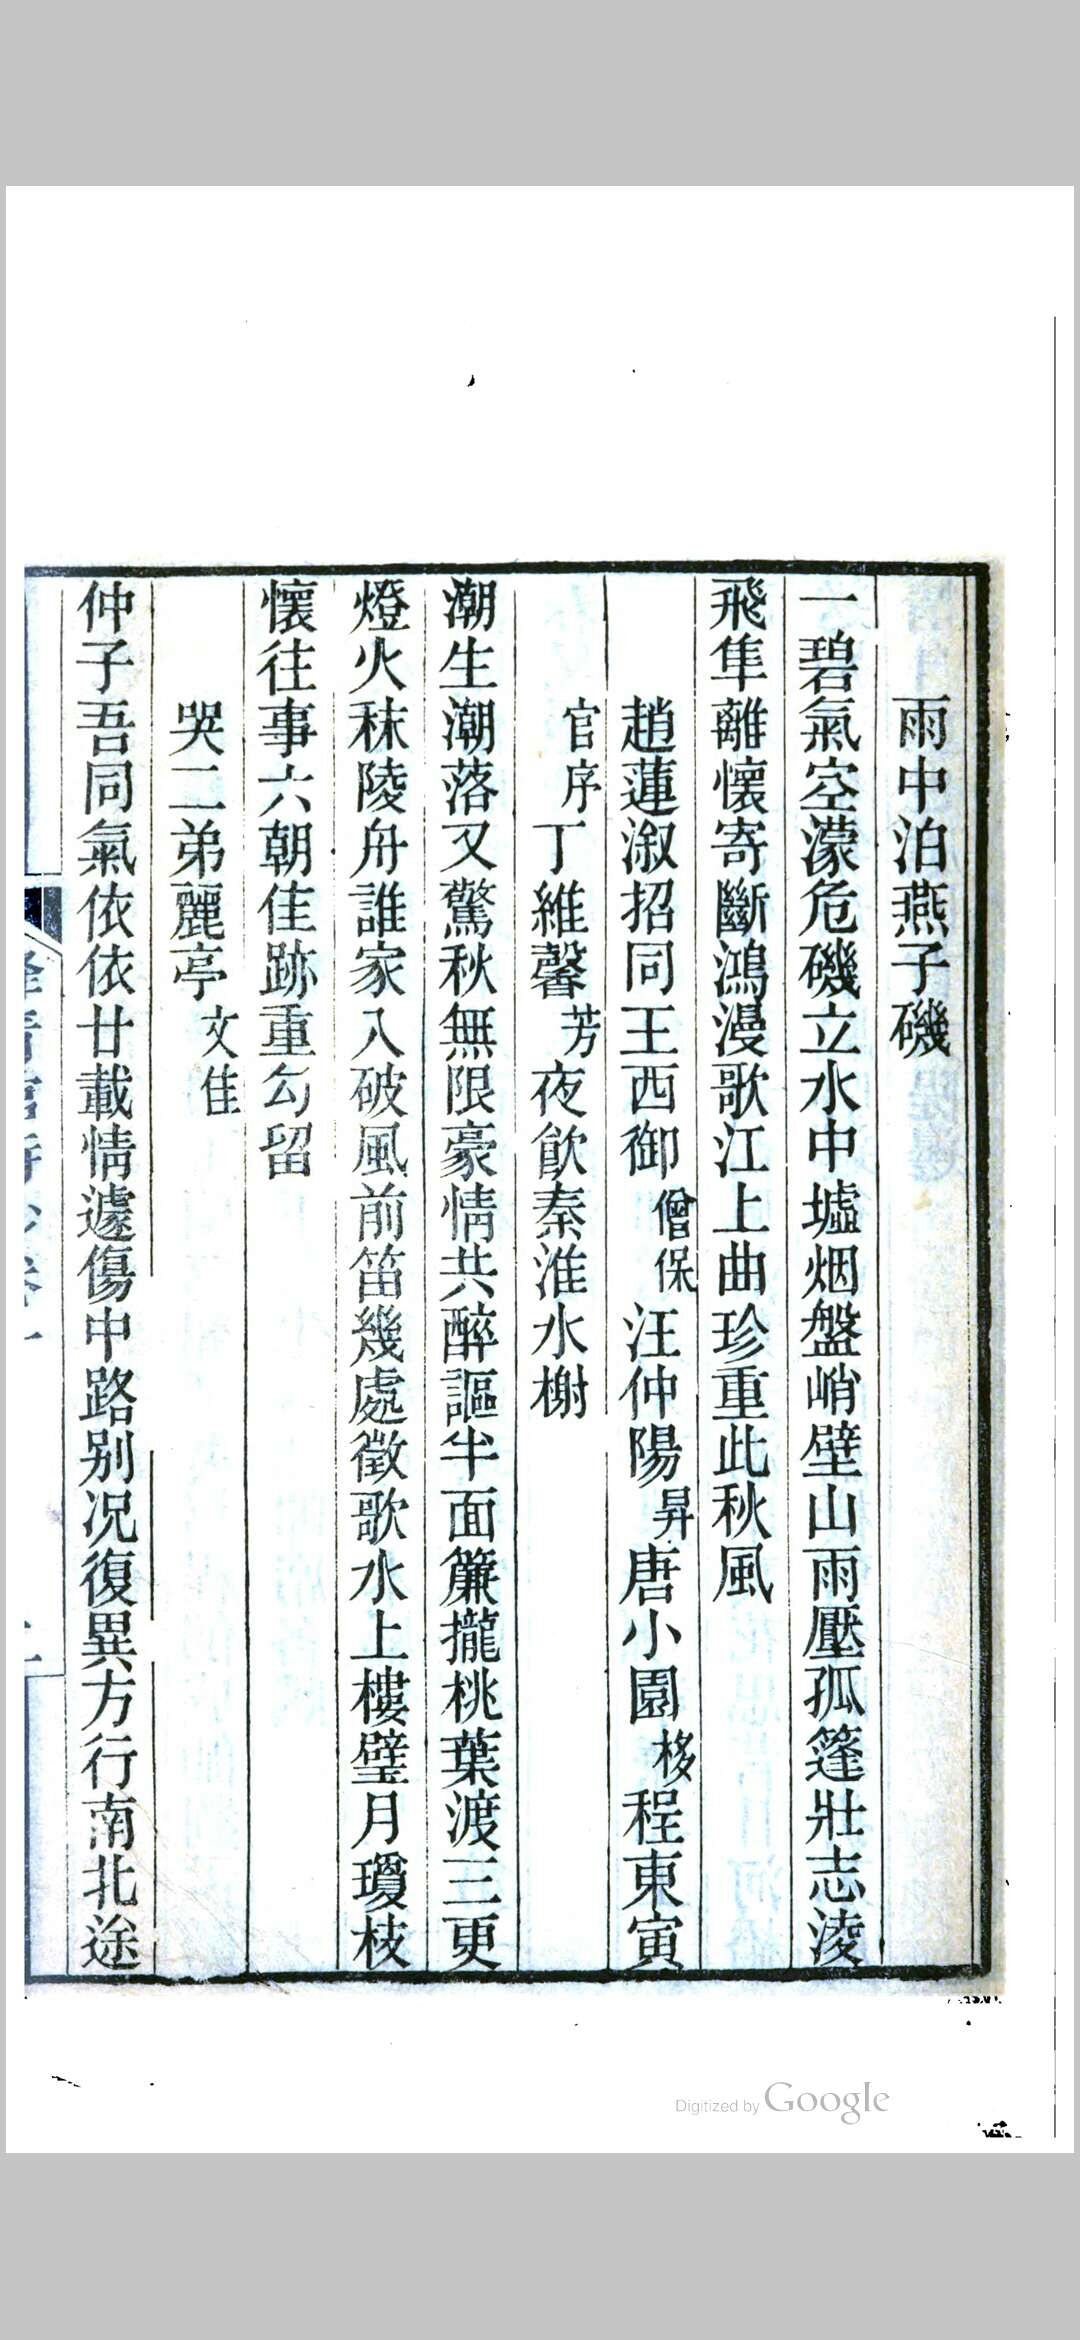 雨中泊燕子磯
一碧氣空濛危磯立水中墟烟盤峭壁山雨壓孤篷壯志淩
飛隼離懷寄斷鴻漫歌江上曲珍重此秋風
趙蓮漵招同王西御僧保汪仲陽昇唐小園栘程東寅
官序丁維馨芳夜飮秦淮水榭
潮生潮落又驚秋無限豪情共醉謳半面簾攏桃葉渡三更
燈火秣陵舟誰家入破風前笛幾處徵歌水上樓璧月瓊枝
懷往事六朝佳跡重勾留
哭二弟麗亭文佳
仲子吾同氣依依廿載情遽傷中路别况復異方行南北途
Digitized by Google